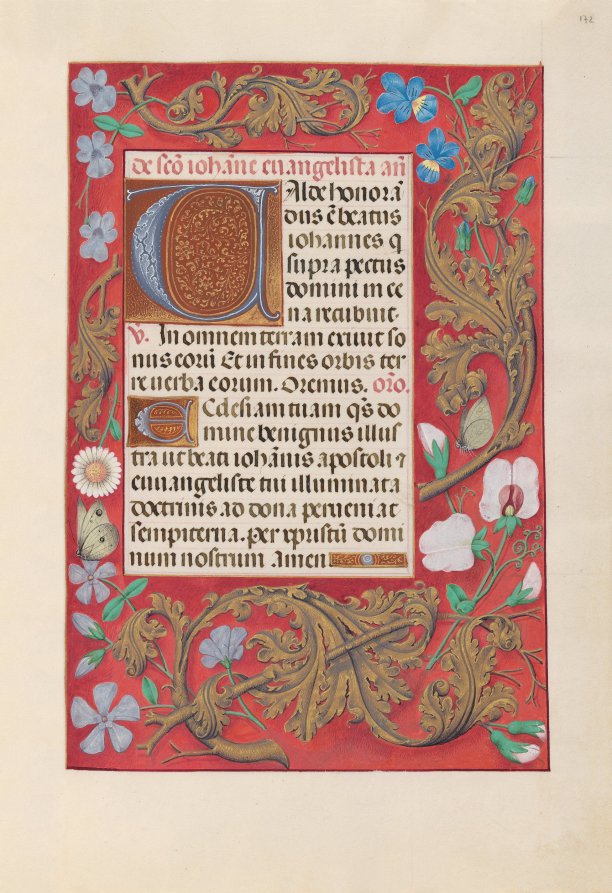 172
de scō iohāne euangelista añ
Valde honorā
dus ē beatus
iohannes q
supra pectus
domini in ce
na recubuit.
V. In omnem terram exiuit so
nus eorū Et in fines orbis ter
re uerba eorum. Oremus. orō.
Ecclesiam tuam qs do
mine benignus illus
tra ut beati iohānis apostoli ⁊
euuangeliste tui illuminata
doctrinis ad dona perueniat
sempiterna. per xpristū domi
num nostrum amen